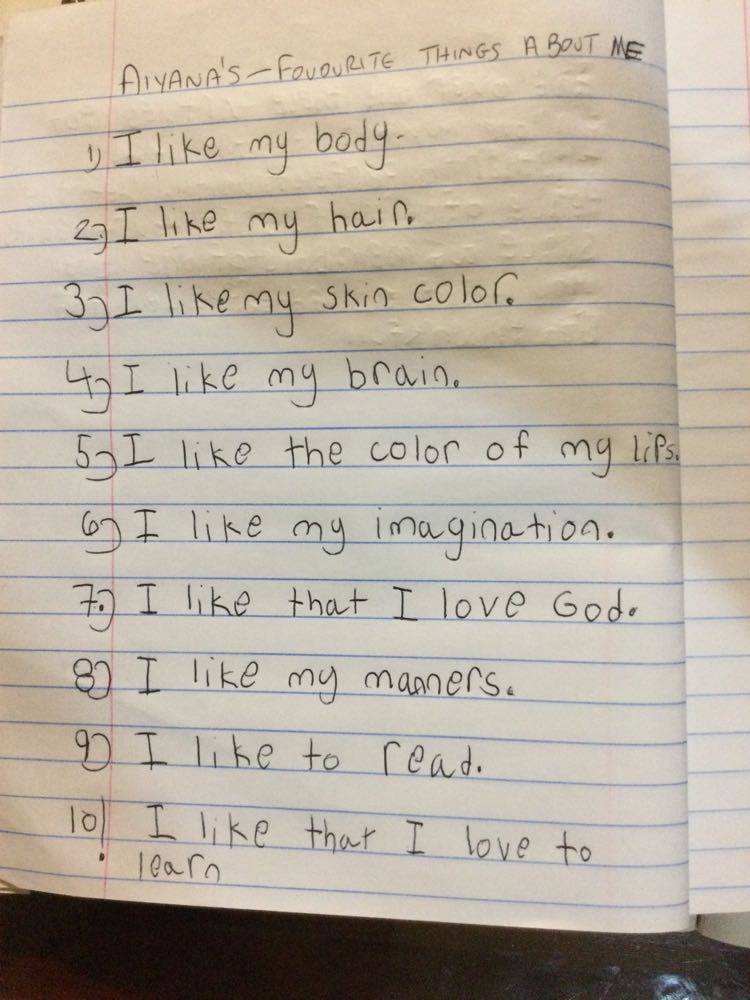 AIYANA'S - FOVOURITE THINGS ABOUT ME
1) I like my body.
2) I like my hair.
3) I like my skin color.
4) I like my brain.
5) I like the color of my lips.
6) I like my imagination.
7.) I like that I love God.
8) I like my manners.
9) I like to read.
10) I like that I love to
learn